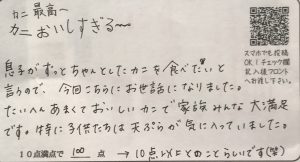 カニ 最高～
カニ おいしすぎる～
息子がずっとちゃんとしたカニを食べたいと
言うので、今回こちらにお世話になりました。
たいへんあまくておいしいカニで家族みんな大満足
です。特に子供たちは天ぷらが気に入っていました。
10点満点で 100 点 → 10点以上とのことらしいです(笑)
スマホでも投稿
OK！チェック欄
記入後フロント
へお渡し下さい。